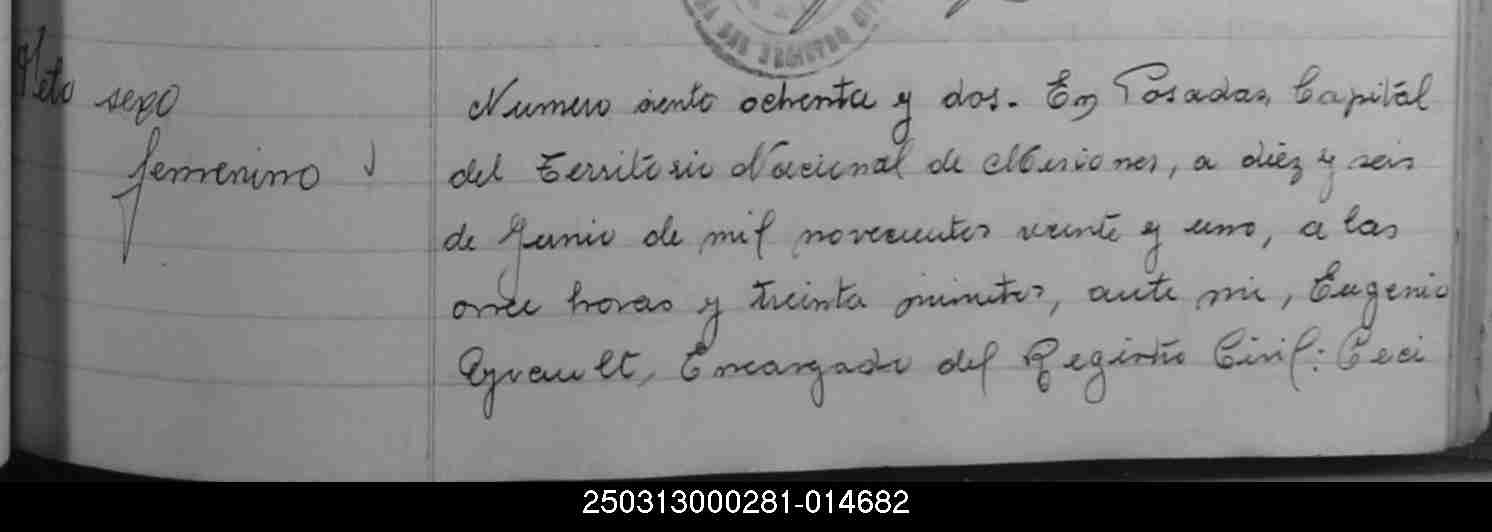 Feto sexo
femenino
Numero ciento ochenta y dos. En Posadas, Capital
del Territorio Nacional de Misiones, a diéz y seis
de Junio de mil novecientos veinte y uno, a las
once horas y treinta minutos, ante mi, Eugenio
Ayrault, Encargado del Registro Civil: Ceci
250313000281-014682